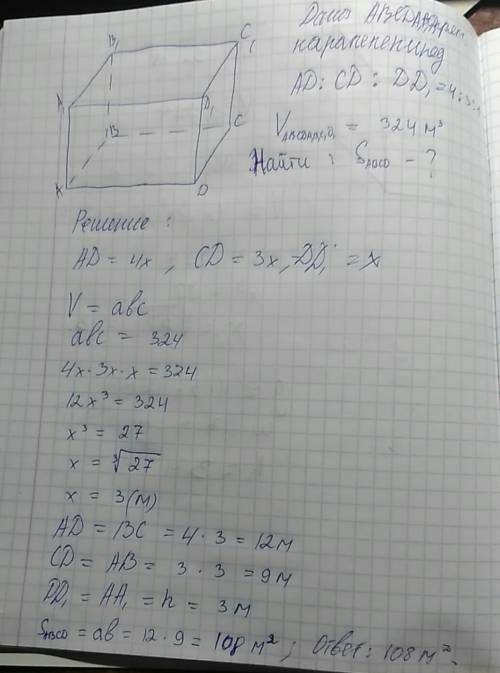 B₁
C₁
Дано: ABCD
параллелепипед
A
D₁
AD : CD : DD₁ = 4 : 3 : 1
B
C
V = 324 м³
Найти : SABCD - ?
D
Решение :
AD = 4x , CD = 3x, DD₁ = x
V = abc
abc = 324
4x · 3x · x = 324
12x³ = 324
x³ = 27
x = ∛27
x = 3 (м)
AD = BC = 4 · 3 = 12 м
CD = AB = 3 · 3 = 9 м
DD₁ = AA₁ = h = 3 м
SABCD = ab = 12 · 9 = 108 м² ; Ответ: 108 м².